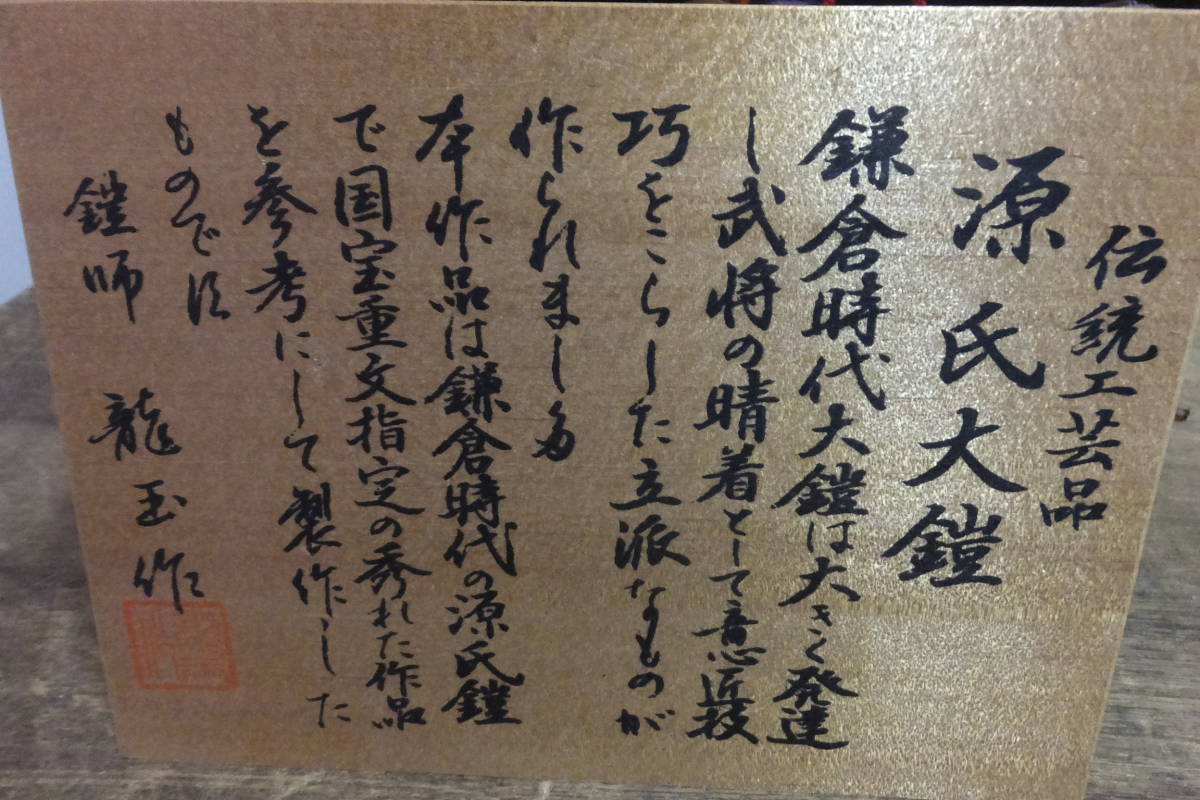 伝統工芸品
源氏大鎧
鎌倉時代大鎧は大きく発達
し武将の晴着として意匠技
巧をこらした立派なものが
作られました
本作品は鎌倉時代の源氏鎧
で国宝重文指定の秀れた作品
を参考にして製作した
ものです
鎧師 龍玉作